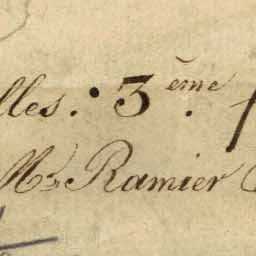 lles. : 3ème.
Mr. Ramier